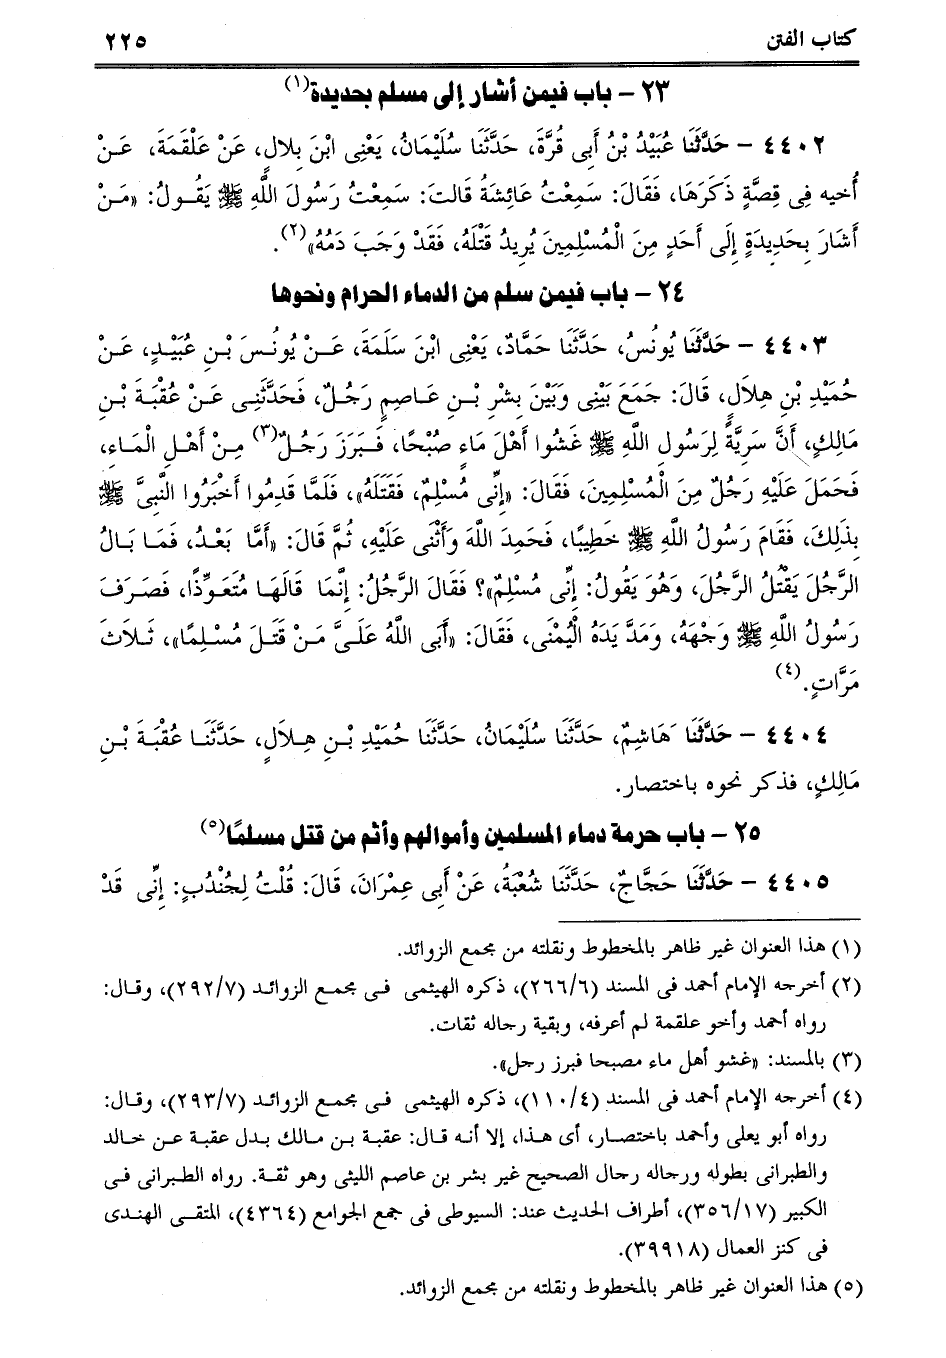 كتاب الفتن ٢٢٥
٢٣ - باب فيمن أشار إلى مسلم بحديدة(١)
٤٤٠٢ - حَدَّثَنَا عُبَيْدُ بْنُ أَبِى قُرَّةَ، حَدَّثَنَا سُلَيْمَانُ، يَعْنِى ابْنَ بِلالٍ، عَنْ عَلْقَمَةَ، عَنْ
أُخيه فِى قِصَّةٍ ذَكَرَهَا، فَقَالَ: سَمِعْتُ عَائِشَةُ قَالتَ: سَمِعْتُ رَسُولَ اللَّهِ ﷺ يَقُولُ: «مَنْ
أَشَارَ بِحَدِيدَةٍ إِلَى أَحَدٍ مِنَ الْمُسْلِمِينَ يُرِيدُ قَتْلَهُ، فَقَدْ وَجَبَ دَمُهُ»(٢).
٢٤ - باب فيمن سلم من الدماء الحرام ونحوها
٤٤٠٣ - حَدَّثَنَا يُونُسُ، حَدَّثَنَا حَمَّادٌ، يَعْنِى ابْنَ سَلَمَةَ، عَنْ يُونُسَ بْنِ عُبَيْدٍ، عَنْ
حُمَيْدِ بْنِ هِلالٍ، قَالَ: جَمَعَ بَيْنِى وَبَيْنَ بِشْرِ بْنِ عَاصِمٍ رَجُلٌ، فَحَدَّثَنِى عَنْ عُقْبَةَ بْنِ
مَالِكٍ، أَنَّ سَرِيَّةً لِرَسُولِ اللَّهِ ﷺ غَشُوا أَهْلَ مَاءٍ صُبْحًا، فَبَرَزَ رَجُلٌ(٣) مِنْ أَهْلِ الْمَاءِ،
فَحَمَلَ عَلَيْهِ رَجُلٌ مِنَ الْمُسْلِمِينَ، فَقَالَ: «إِنِّى مُسْلِمٌ، فَقَتَلَهُ»، فَلَمَّا قَدِمُوا أَخْبَرُوا النَّبِىَّ ﷺ
بِذَلِكَ، فَقَامَ رَسُولُ اللَّهِ ﷺ خَطِيبًا، فَحَمِدَ اللَّهَ وَأَثْنَى عَلَيْهِ، ثُمَّ قَالَ: «أَمَّا بَعْدُ، فَمَا بَالُ
الرَّجُلَ يَقْتُلُ الرَّجُلَ، وَهُوَ يَقُولُ: إِنِّى مُسْلِمٌ»؟ فَقَالَ الرَّجُلُ: إِنَّمَا قَالَهَا مُتَعَوِّذًا، فَصَرَفَ
رَسُولُ اللَّهِ ﷺ وَجْهَهُ، وَمَدَّ يَدَهُ الْيُمْنَى، فَقَالَ: «أَبَى اللَّهُ عَلَىَّ مَنْ قَتَلَ مُسْلِمًا»، ثَلاثَ
مَرَّاتٍ.(٤)
٤٤٠٤ - حَدَّثَنَا هَاشِمٌ، حَدَّثَنَا سُلَيْمَانُ، حَدَّثَنَا حُمَيْدِ بْنِ هِلالٍ، حَدَّثَنَا عُقْبَةَ بْنِ
مَالِكٍ، فذكر نحوه باختصار.
٢٥ - باب حرمة دماء المسلمين وأموالهم وأثم من قتل مسلمًا(٥)
٤٤٠٥ - حَدَّثَنَا حَجَّاجٌ، حَدَّثَنَا شُعْبَةُ، عَنْ أَبِى عِمْرَانَ، قَالَ: قُلْتُ لِجُنْدُبٍ: إِنِّى قَدْ
(١) هذا العنوان غير ظاهر بالمخطوط ونقلته من مجمع الزوائد.
(٢) أخرجه الإمام أحمد فى المسند (٢٦٦/٦)، ذكره الهيثمى فى مجمع الزوائد (٢٩٢/٧)، وقال:
رواه أحمد وأخو علقمة لم أعرفه، وبقية رجاله ثقات.
(٣) بالمسند: «غشو أهل ماء مصبحا فبرز رحل».
(٤) أخرجه الإمام أحمد فى المسند (١١٠/٤)، ذكره الهيثمى فى مجمع الزوائد (٢٩٣/٧)، وقال:
رواه أبو يعلى وأحمد باختصار، أى هذا، إلا أنه قال: عقبة بن مالك بدل عقبة عن خالد
والطبرانى بطوله ورجاله رجال الصحيح غير بشر بن عاصم الليثى وهو ثقة. رواه الطبرانى فى
الكبير (٣٥٦/١٧)، أطراف الحديث عند: السيوطى فى جمع الجوامع (٤٣٦٤)، المتقى الهندى
فى كنز العمال (٣٩٩١٨).
(٥) هذا العنوان غير ظاهر بالمخطوط ونقلته من مجمع الزوائد.